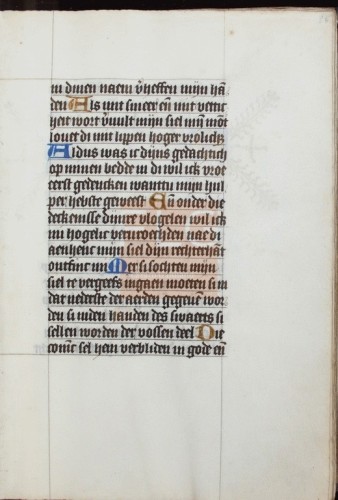 in dinen naem v̄heffen mijn hā
den Als mit smeer eñ mit vettic
heit wort v̄vult mijn siel mȳ mōt
louet di mit lippen hoger vrolichz
Aldus was ic dijns gedachtich
op minen bedde in di wil ick vroe
teerst gedencken wanttu mijn hul
per hebste geweest Eñ onder die
deckenisse dijnre vlogelen wil ick
mi hogelic vervroechden nae di
aenhenc mijn siel dijn rechterhāt
ontfinc mi Mer si sochten mijn
siel te vergeefs ingaen moeten si in
dat nederste der aerden gegeuē wor
den si in den handen des swaerts si
sellen worden der vossen deel Die
coninc sel hem verbliden in gode eñ